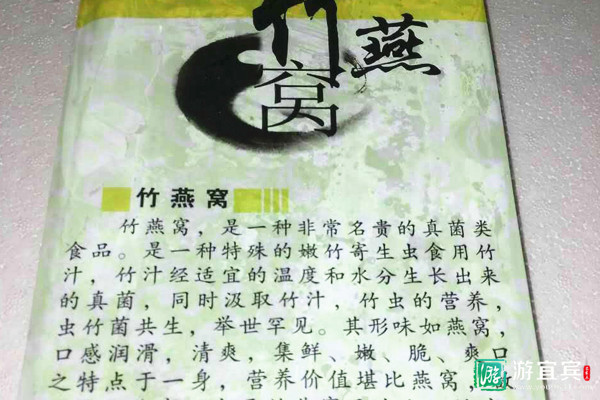 竹燕
窝
竹燕窝
竹燕窝，是一种非常名貴的真菌类
食品。是一种特殊的嫩竹寄生虫食用竹
汁，竹汁经适宜的温度和水分生长出来
的真菌，同时汲取竹汁，竹虫的营养，
虫竹菌共生，举世罕见。其形味如燕窝，
口感润滑，清爽，集鲜、嫩、脆、爽口
之特点于一身，营养价值堪比燕窝，故
游宜宾